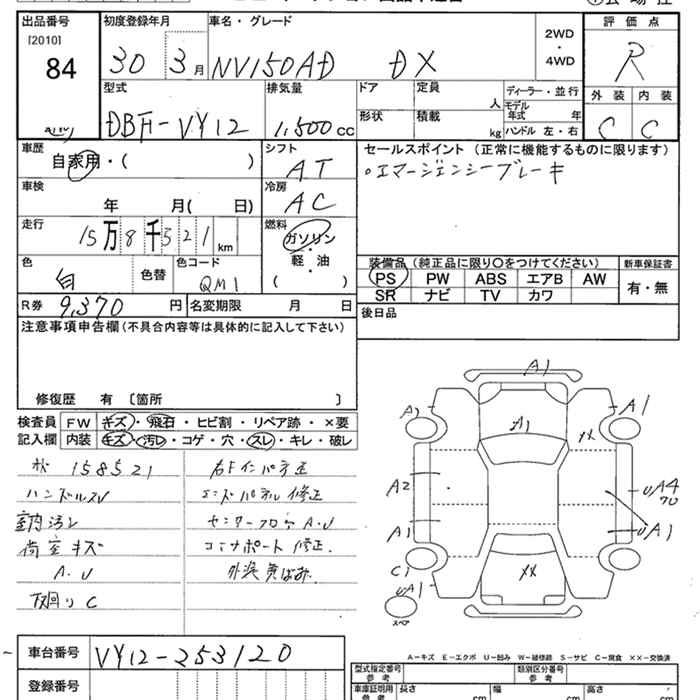 出品番号 初度登録年月 車名・グレード 2WD・4WD 評価点
[2010]
84 30 3月 NV150AD DX R
型式 排気量 ドア 定員 人 ディーラー・並行 外装 内装
DBF-VY12 1,500cc 形状 積載 kg モデル年式 年 C C
ハンドル 左・右
車歴 自家用・( ) シフト AT セールスポイント (正常に機能するものに限ります)
車検 年 月( 日) 冷房 AC ○エマージェンシーブレーキ
走行 15万8千521km 燃料 ガソリン・軽・油 ( )
色 白 色替 色コード QM1
装備品 (純正品に限り○をつけてください) 新車保証書
PS PW ABS エアB AW 有・無
SR ナビ TV カワ
R券 9,370円 名変期限 月 日
後日品
注意事項申告欄 (不具合内容等は具体的に記入して下さい)
修復歴 有 〔箇所 〕
検査員 FW キズ・飛石・ヒビ割・リペア跡・×要
記入欄 内装 キズ・汚レ・コゲ・穴・スレ・キレ・破レ
158521 右Fインパネ歪
ハンドルスレ エンドパネル修正
室内汚レ センターフロアA.U
荷室キズ コーナーポート修正
A.U 外装黄ばみ
下回りC
A1
A2 A1 A1
××
A2 UA4
70
A1 UA1
C1 ××
UA1
スペア
A-キズ E-エクボ U-凹み W-補修跡 S-サビ C-腐食 ××-交換済
車台番号 VY12-253120
登録番号
型式指定番号 参考 類別区分番号 参考
車庫証明用 参考 長さ cm 幅 cm 高さ cm